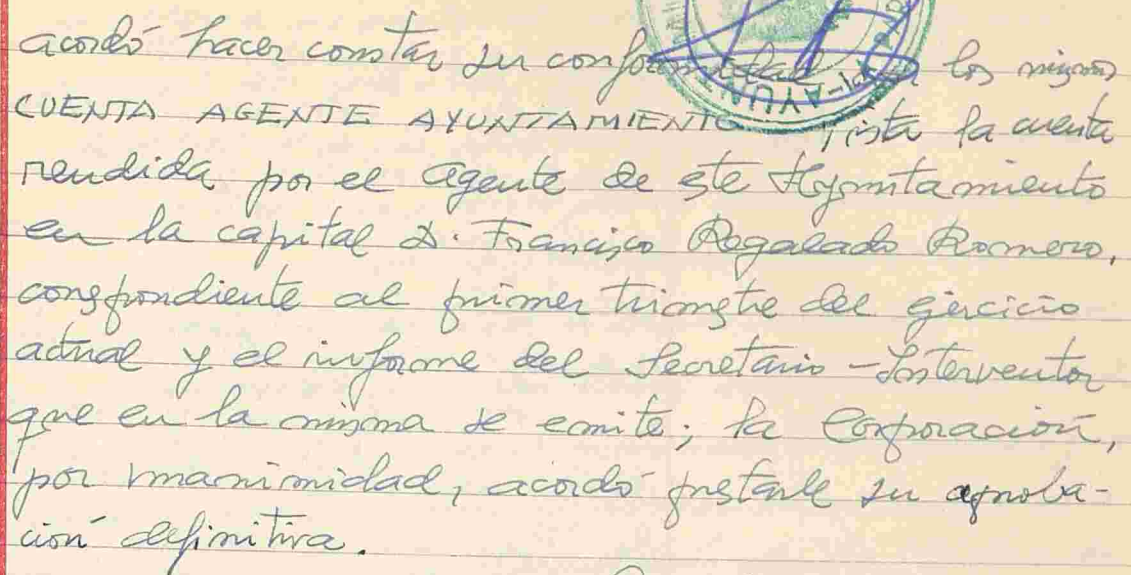 acordó hacer constar su conformidad a los mismos
CUENTA AGENTE AYUNTAMIENTO Vista la cuenta
rendida por el agente de este Ayuntamiento
en la capital D. Francisco Regalado Romero,
correspondiente al primer trimestre del ejercicio
actual y el informe del Secretario-Interventor
que en la misma se emite; la Corporación,
por unanimidad, acordó prestarle su aproba-
ción definitiva.